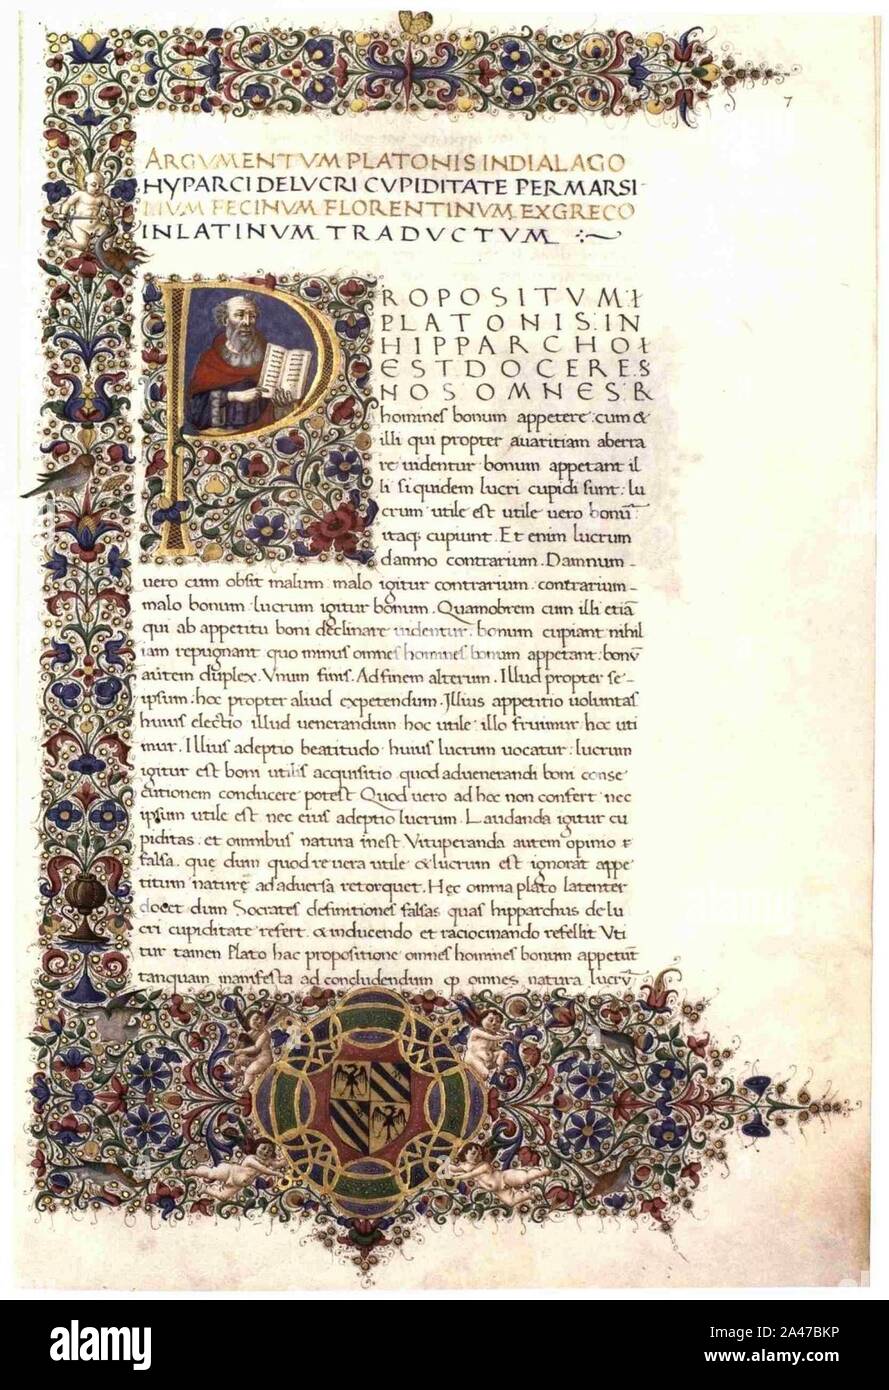 7
ARGVMENTVM PLATONIS IN DIALAGO
HYPARCI DE LVCRI CVPIDITATE PER MARSI-
LIVM FECINVM FLORENTINVM EX GRECO
IN LATINVM TRADVCTVM
PROPOSITVM
PLATONIS IN
HIPPARCHO
EST DOCERE
NOS OMNES
homines bonum appetere: cum &
illi qui propter auaritiam aberra
re uidentur bonum appetant il
li siquidem lucri cupidi sunt: lu
crum utile est utile uero bonū
itaq; cupiunt. Et enim lucrum
damno contrarium. Damnum
uero cum obsit malum malo igitur contrarium contrarium
malo bonum lucrum igitur bonum. Quamobrem cum illi etiā
qui ab appetitu boni declinare uidentur, bonum cupiant nihil
iam repugnant quo minus omnes homines bonum appetant: bonū
autem duplex. Vnum finis. Ad finem alterum. Illud propter se-
ipsum: hoc propter aliud expetendum. Illius appetitio uoluntas
huius electio illud uenerandum hoc utile illo fruimur hoc uti
mur. Illius adeptio beatitudo huius lucrum uocatur: lucrum
igitur est boni utilis acquisitio quod ad uenerandi boni conse
cutionem conducere potest Quod uero ad hoc non confert nec
ipsum utile est nec eius adeptio lucrum. Laudanda igitur cu
piditas: et omnibus natura inest. Vituperanda autem opinio
falsa. quę dum quod re uera utile & lucrum est ignorat appe
titum naturę ad aduersa retorquet. Hęc omnia plato latenter
docet dum Socrates definitiones falsas quas hipparchus de lu
cri cupiditate refert. & inducendo et raciocinando refellit Vti
tur tamen Plato hac propositione omnes homines bonum appetūt
tanquam manifesta ad concludendum ꝙ omnes natura lucrū
alamy
Image ID: 2A47BKP
www.alamy.com